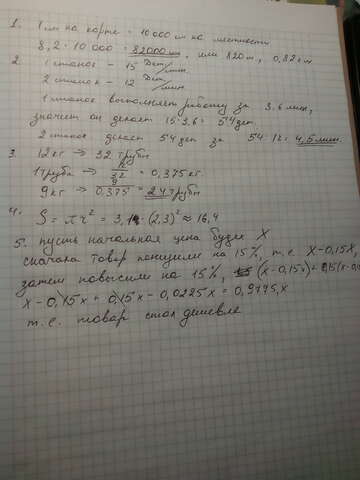 1. 1 см на карте - 10 000 см на местности
8,2 · 10 000 = 82000 см, или 820 м, 0,82 км
2. 1 станок - 15 дет/мин.
2 станок - 12 дет/мин.
1 станок выполняет работу за 3.6 мин,
значит он делает 15·3,6 = 54 дет.
2 станок делает 54 дет за 54:12 = 4,5 мин.
3. 12 кг → 32 трубы
1 труба → 12/32 = 0,375 кг.
9 кг → 9/0,375 = 24 трубы
4. S = πr² = 3,14 · (2,3)² ≈ 16,4
5. пусть начальная цена будет X
сначала товар понизили на 15%, т.е. X-0,15X,
затем повысили на 15%, (x-0,15x)+0,15(x-0,15
x-0,15x+0,15x-0,0225x=0,9775x
т.е. товар стал дешевле